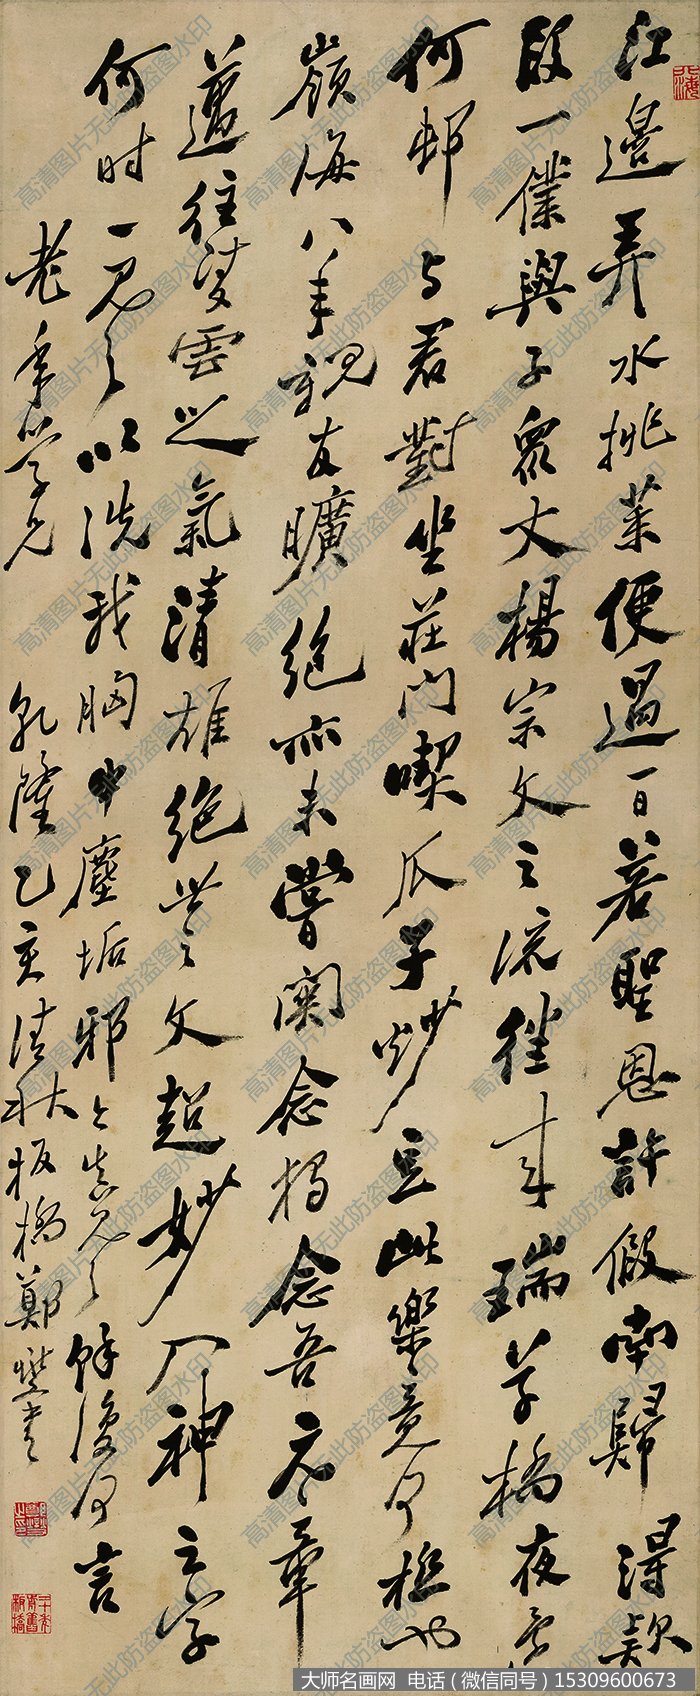 江邊弄水挑菜便過一日若聖恩許假南歸得款
段一僕與子眾丈楊宗文之流往來瑞草橋夜還
何邨與君對坐莊門喫瓜子炒豆此樂竟何極也
嶺海八年親友曠絕亦未嘗關念獨念吾元章
邁往凌雲之氣清雄絕世之文超妙入神之字
何時一見之以洗我胸中塵垢邪今真見之餘復何言
老年學兄 乾隆乙亥清秋板橋鄭燮書
大师名画网 电话（微信同号）15309600673
高清图片无此防盗图水印